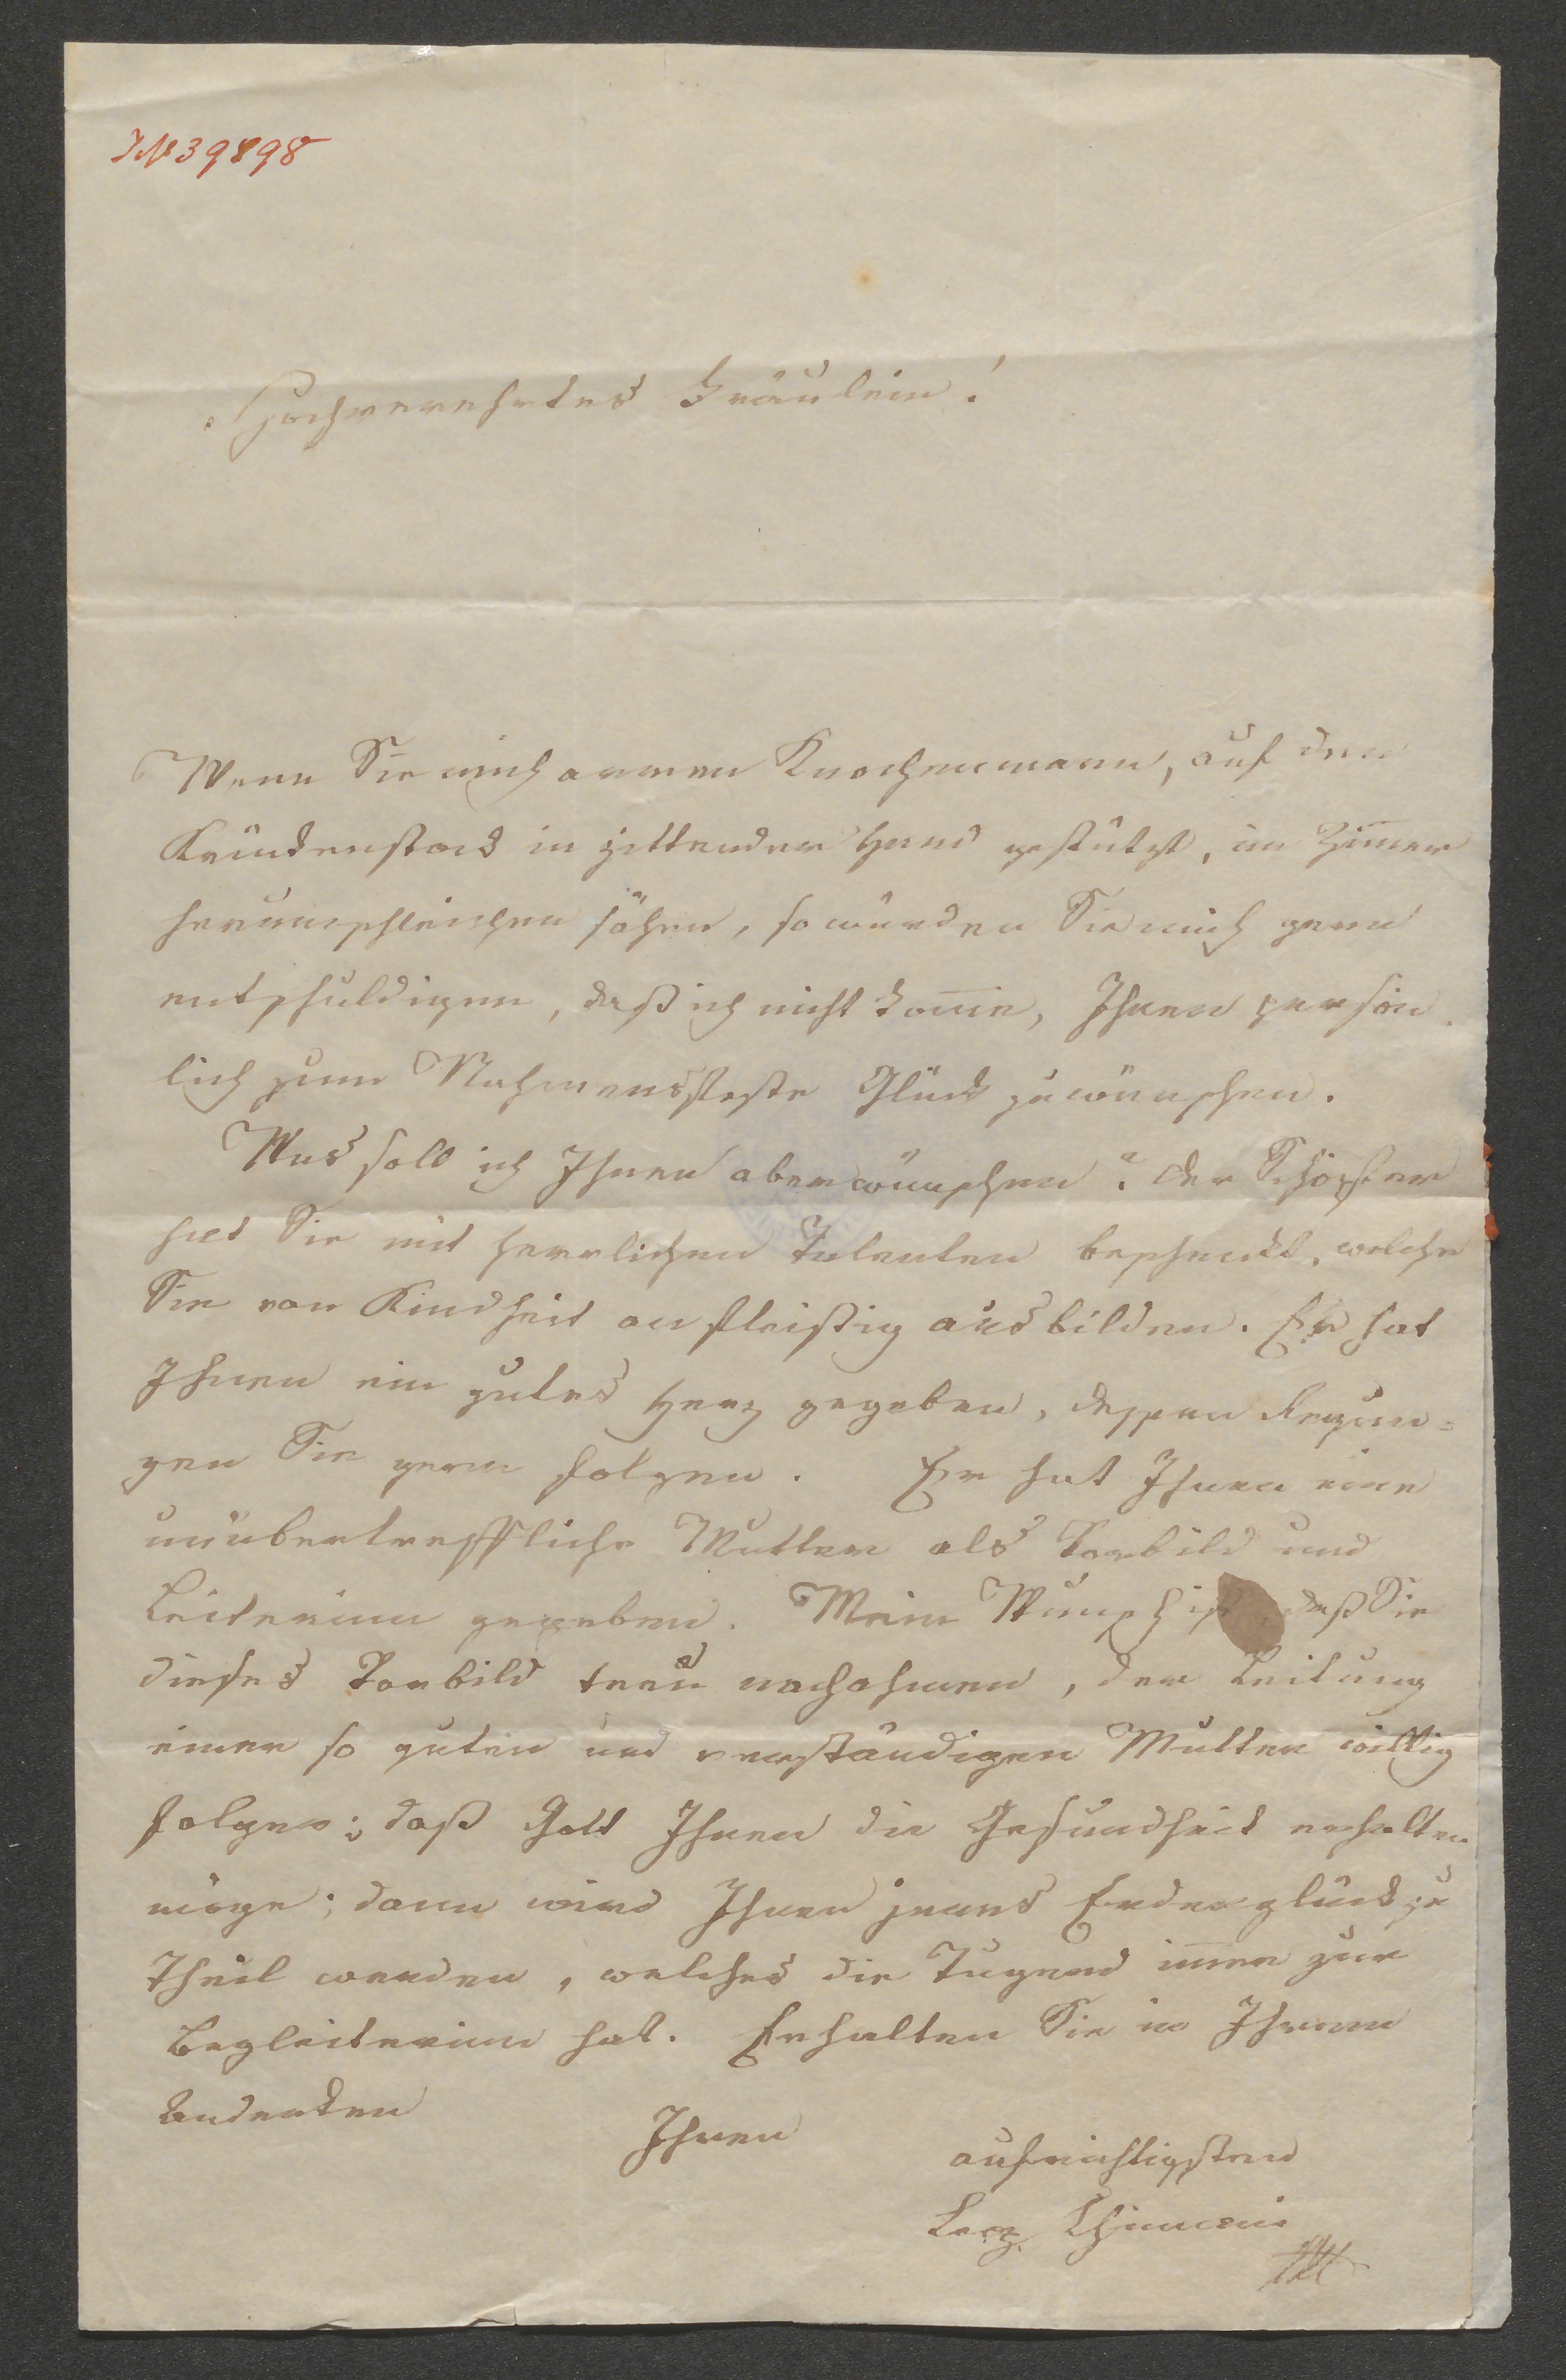 JN 39898
Hochverehrtes Fräulein!
Wenn Sie mich armen Knochenmann, auf den
Krückenstock in zitternder Hand gestützt, im Zim̄er
herumschleichen sähen, so würden Sie mich gern
entschuldigen, daß ich nicht kom̄e, Ihnen persön
lich zum Nahmensfeste Glück zu wünschen.
Was soll ich Ihnen aber wünschen? der Schöpfer
hat Sie mit herrlichen Talenten beschenkt, welche
Sie von Kindheit an fleißig ausbilden. Er hat
Ihnen ein gutes Herz gegeben, dessen Regun=
gen Sie gern folgen. Er hat Ihnen eine
unübertreffliche Mutter als Vorbild und
Leiterinn gegeben. Mein Wunsch ist, daß Sie
dieses Vorbild treu nachahmen, der Leitung
einer so guten und verständigen Mutter willig
folgen; daß Gott Ihnen die Gesundheit erhalten
möge; dann wird Ihnen jenes Erdenglück zu
Theil werden, welches die Tugend im̄er zur
Begleiterinn hat. Erhalten Sie in Ihrem
Andenken
Ihren
aufrichtigsten
Leop. Chimani